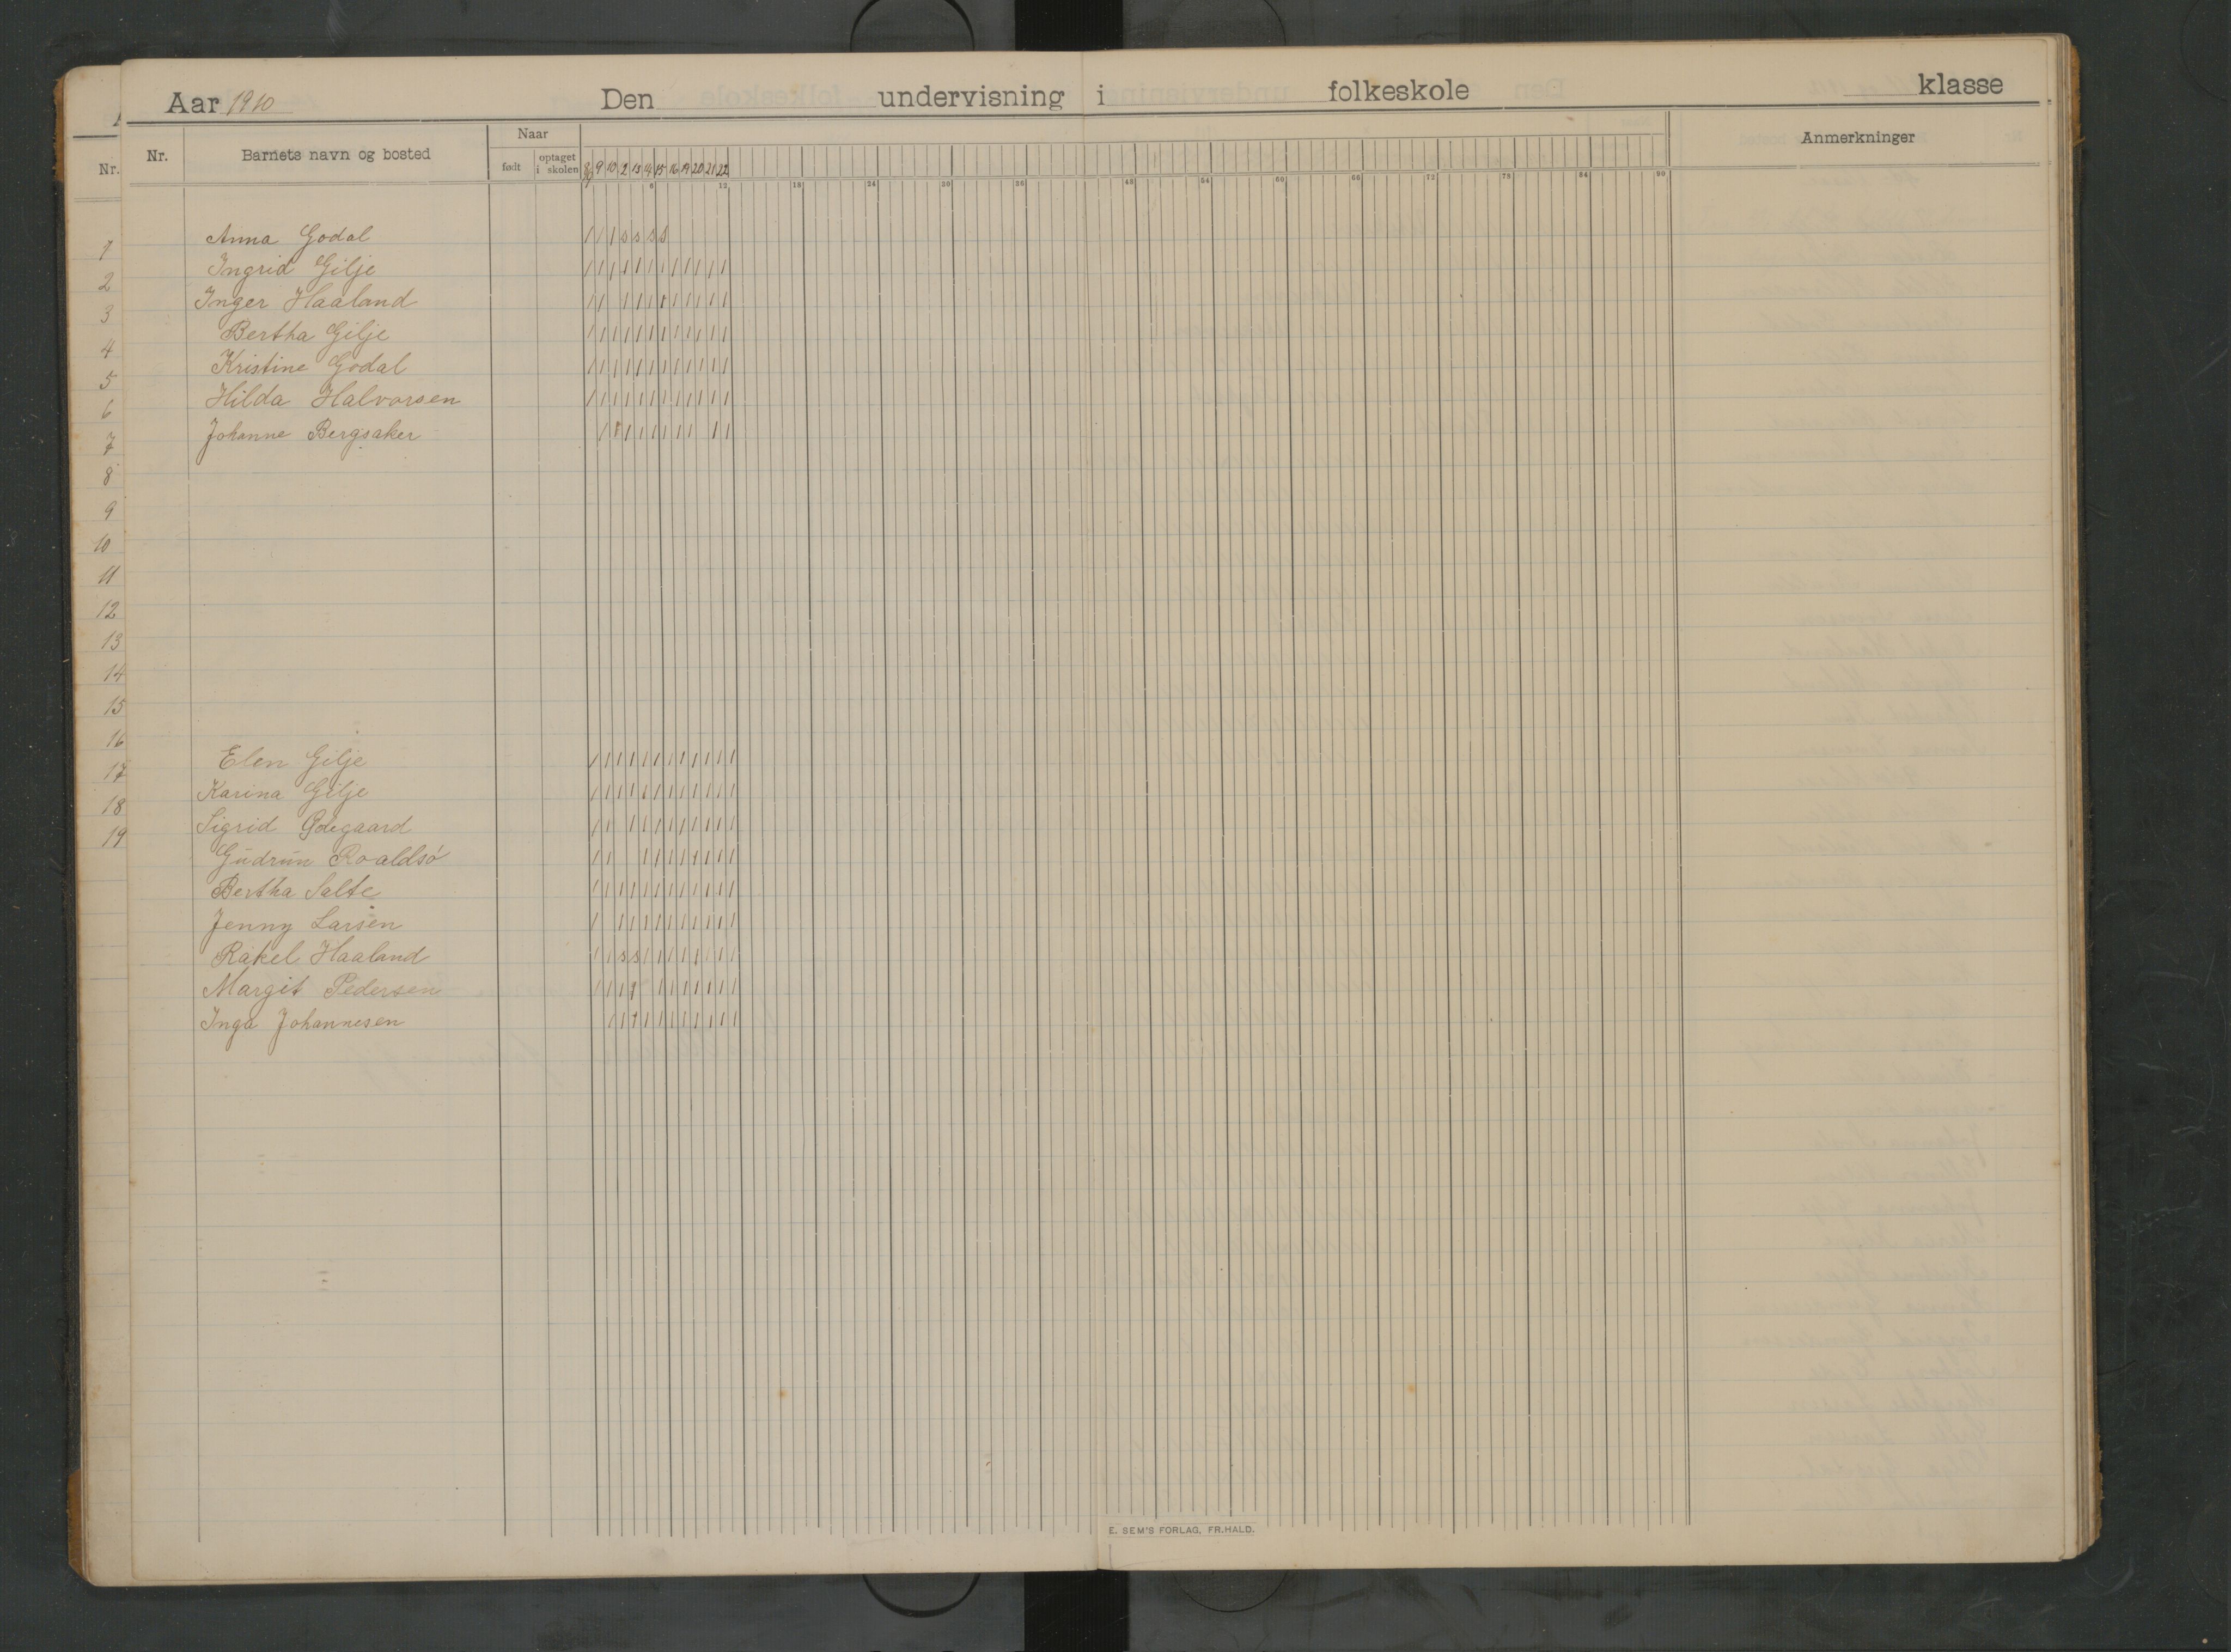 Aar 1910 Den undervisning i folkeskole klasse
Nr. Nr. Barnets navn og bosted Naar Anmerkninger
født optaget i skolen
9 10 2 13 14 15 16 19 20 21 22
6 12 18 24 30 36 48 54 60 66 72 78 84 90
1 Anna Godal / / / s s s s
2 Ingrid Gilje / / / / / / / / / / / /
3 Inger Haaland / / / / / / / / / / /
4 Bertha Gilje / / / / / / / / / / / /
5 Kristine Godal / / / / / / / / / / / /
6 Hilda Halvorsen / / / / / / / / / / / /
7 Johanne Bergsaker / / / / / / / / / /
8
9
10
11
12
13
14
15
16
17 Elen Gilje / / / / / / / / / / / /
18 Karina Gilje / / / / / / / / / / / /
19 Sigrid Ødegaard / / / / / / / / / / /
Gudrun Roaldsø / / / / / / / / / /
Bertha Salte / / / / / / / / / / / /
Jenny Larsen / / / / / / / / / / /
Rakel Haaland / / s s / / / / / / / /
Margit Pedersen / / / / / / / / / / /
Inga Johannesen / / / / / / / / / / /
E. SEM'S FORLAG, FR.HALD.